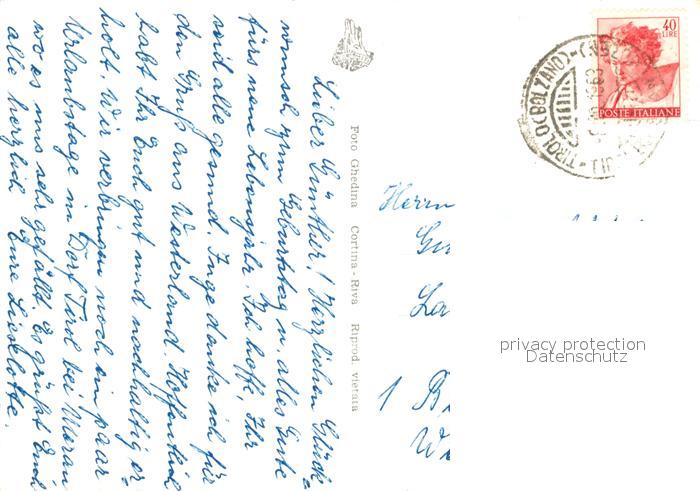 Lieber Günther! Herzlichen Glück-
wunsch zum Geburtstag u. alles Gute
fürs neue Lebensjahr. Ich hoffe, Ihr
seid alle gesund. Inge danke ich für
den Gruß aus Westerland. Hoffentlich
habt Ihr Euch gut und nachhaltig er-
holt. Wir verbringen noch ein paar
Urlaubstage in Dorf Tirol bei Meran
wo es uns sehr gefällt. Es grüßt Euch
alle herzlich Eure Lieselotte.
Foto Ghedina Cortina - Riva Riprod. vietata
40
LIRE
POSTE ITALIANE
TIROLO (BOLZANO)
Herrn
1 B
privacy protection
Datenschutz